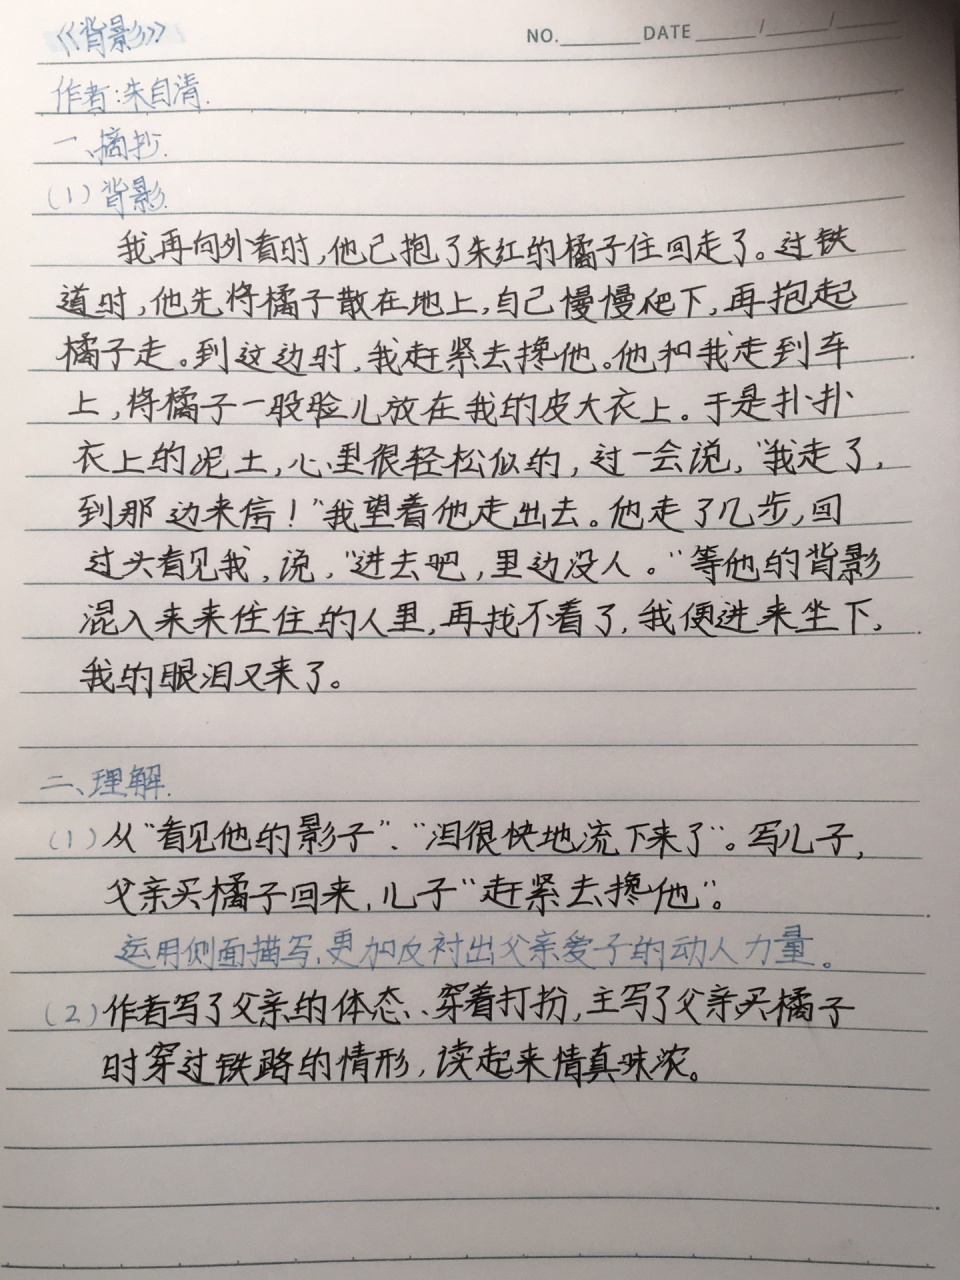 《背影》
NO. DATE / /
作者:朱自清.
一、摘抄.
(1)背影.
我再向外看时,他已抱了朱红的橘子往回走了。过铁
道时,他先将橘子散在地上,自己慢慢爬下,再抱起
橘子走。到这边时,我赶紧去搀他。他和我走到车
上,将橘子一股脸儿放在我的皮大衣上。于是扑扑
衣上的泥土,心里很轻松似的,过一会说,“我走了,
到那边来信!”我望着他走出去。他走了几步,回
过头看见我,说,“进去吧,里边没人。”等他的背影
混入来来往往的人里,再找不着了,我便进来坐下,
我的眼泪又来了。
二、理解.
(1)从“看见他的影子”、“泪很快地流下来了”。写儿子,
父亲买橘子回来,儿子“赶紧去搀他”。
运用侧面描写,更加反衬出父亲爱子的动人力量。
(2)作者写了父亲的体态、穿着打扮,主写了父亲买橘子
时穿过铁路的情形,读起来情真味浓。